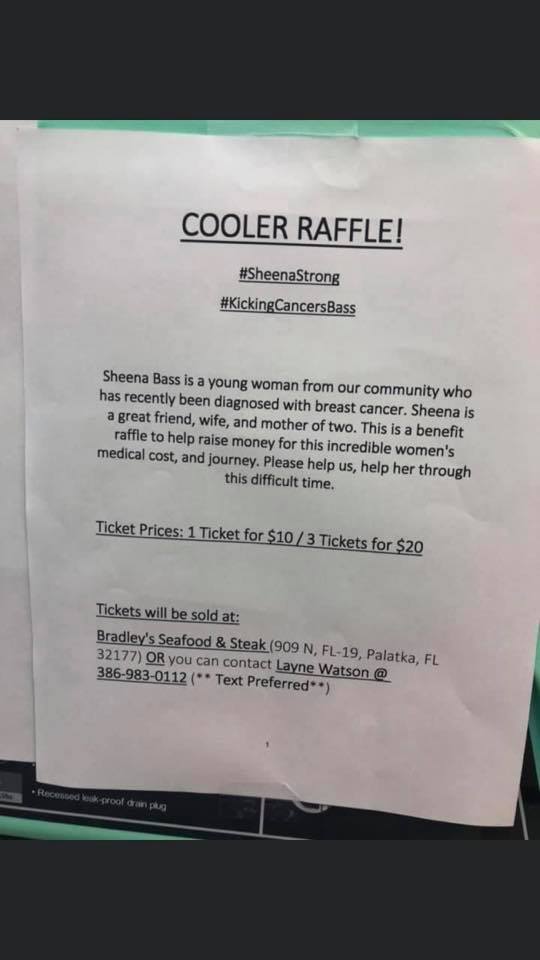 COOLER RAFFLE!
#SheenaStrong
#KickingCancersBass
Sheena Bass is a young woman from our community who
has recently been diagnosed with breast cancer. Sheena is
a great friend, wife, and mother of two. This is a benefit
raffle to help raise money for this incredible women's
medical cost, and journey. Please help us, help her through
this difficult time.
Ticket Prices: 1 Ticket for $10 / 3 Tickets for $20
Tickets will be sold at:
Bradley's Seafood & Steak (909 N, FL-19, Palatka, FL
32177) OR you can contact Layne Watson @
386-983-0112 (** Text Preferred**)
1
• Recessed leak-proof drain plug